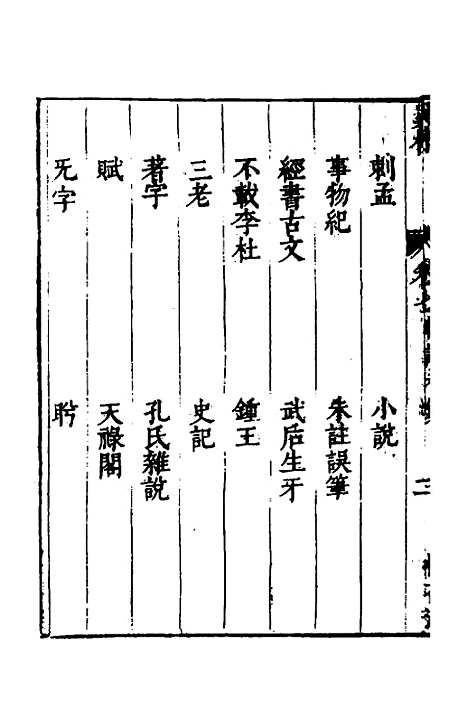 刺孟　小說
事物紀　朱註誤筆
經書古文　武后生牙
不載李杜　鍾王
三老　史記
著字　孔氏雜說
賦　天祿閣
旡字　肹